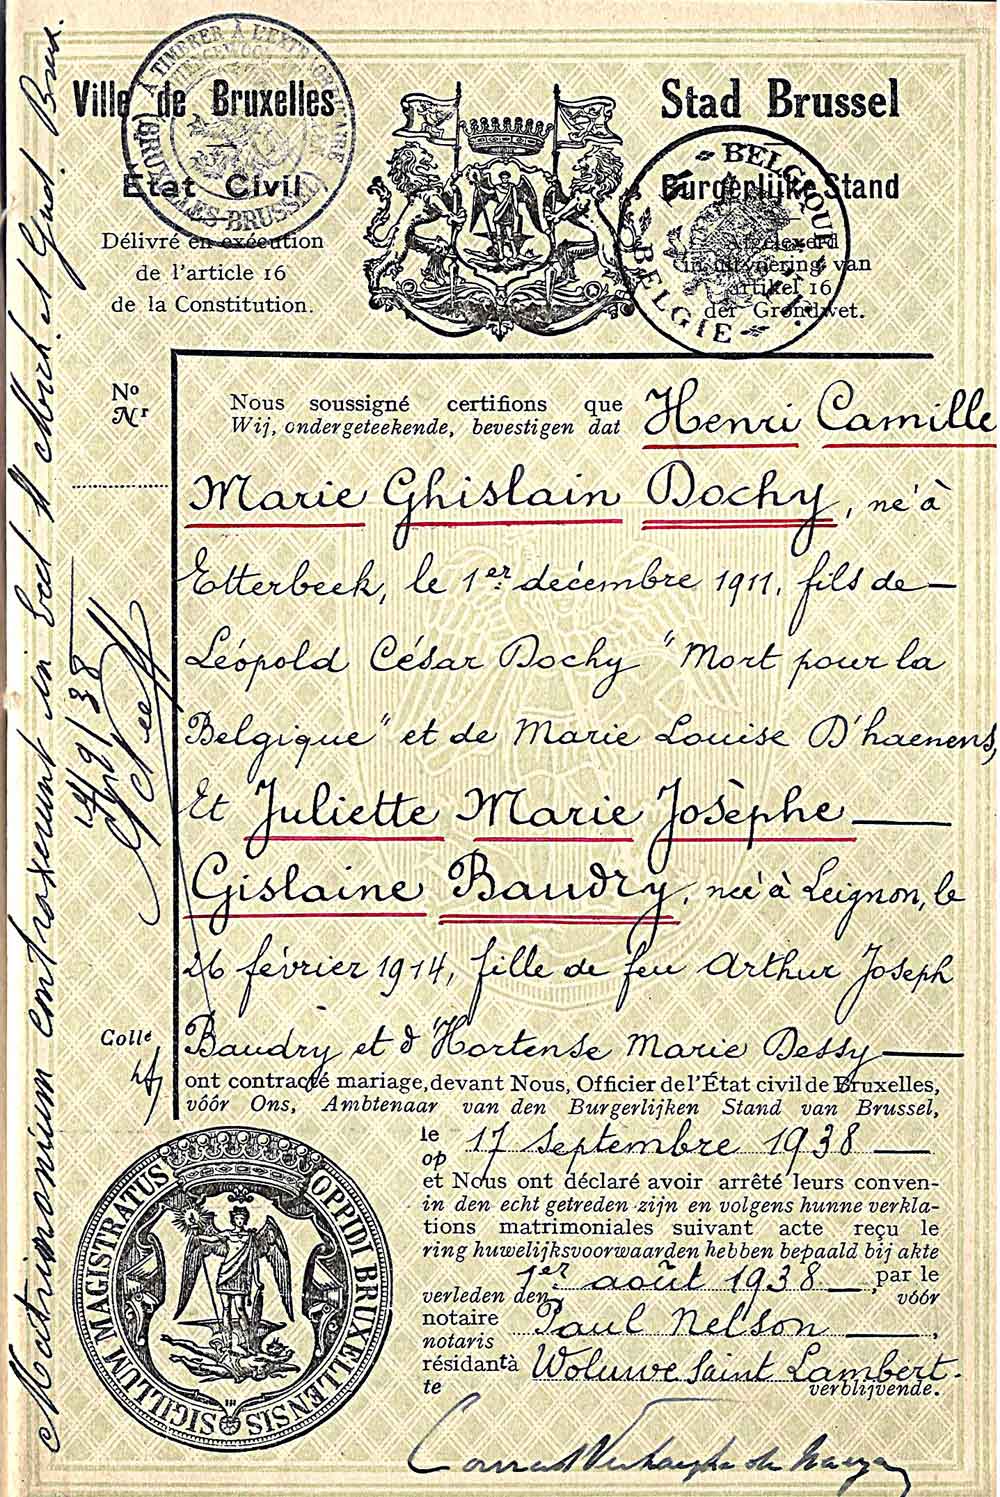 Ville de Bruxelles
État Civil
Délivré en exécution
de l'article 16
de la Constitution.
À TIMBRER À L'EXTRAORDINAIRE
(BRUXELLES-BRUSSEL)
Stad Brussel
Burgerlijke Stand
Afgeleverd
in uitvoering van
artikel 16
der Grondwet.
BELGIQUE
BELGIE
No
Nr
Nous soussigné certifions que
Wij, ondergeteekende, bevestigen dat
Henri Camille
Marie Ghislain Dochy, né à
Etterbeek, le 1er décembre 1911, fils de —
Léopold César Dochy "Mort pour la
Belgique" et de Marie Louise D'haenens,
Et Juliette Marie Josèphe —
Gislaine Baudry, née à Leignon, le
26 février 1914, fille de feu Arthur Joseph
Baudry et d'Hortense Marie Dessy —
Collé
ont contracté mariage, devant Nous, Officier de l'État civil de Bruxelles,
vóór Ons, Ambtenaar van den Burgerlijken Stand van Brussel,
le
op
17 Septembre 1938 —
et Nous ont déclaré avoir arrêté leurs conven-
in den echt getreden zijn en volgens hunne verkla-
tions matrimoniales suivant acte reçu le
ring huwelijksvoorwaarden hebben bepaald bij akte
1er août 1938 —, par le
verleden den vóór
notaire
notaris
Paul Nelson —,
résidant à
te
Woluwe Saint Lambert.
verblijvende.
SIGILLUM MAGISTRATUS OPPIDI BRUXELLENSIS
Matrimonium contraxerunt in Eccl.
17/9/38